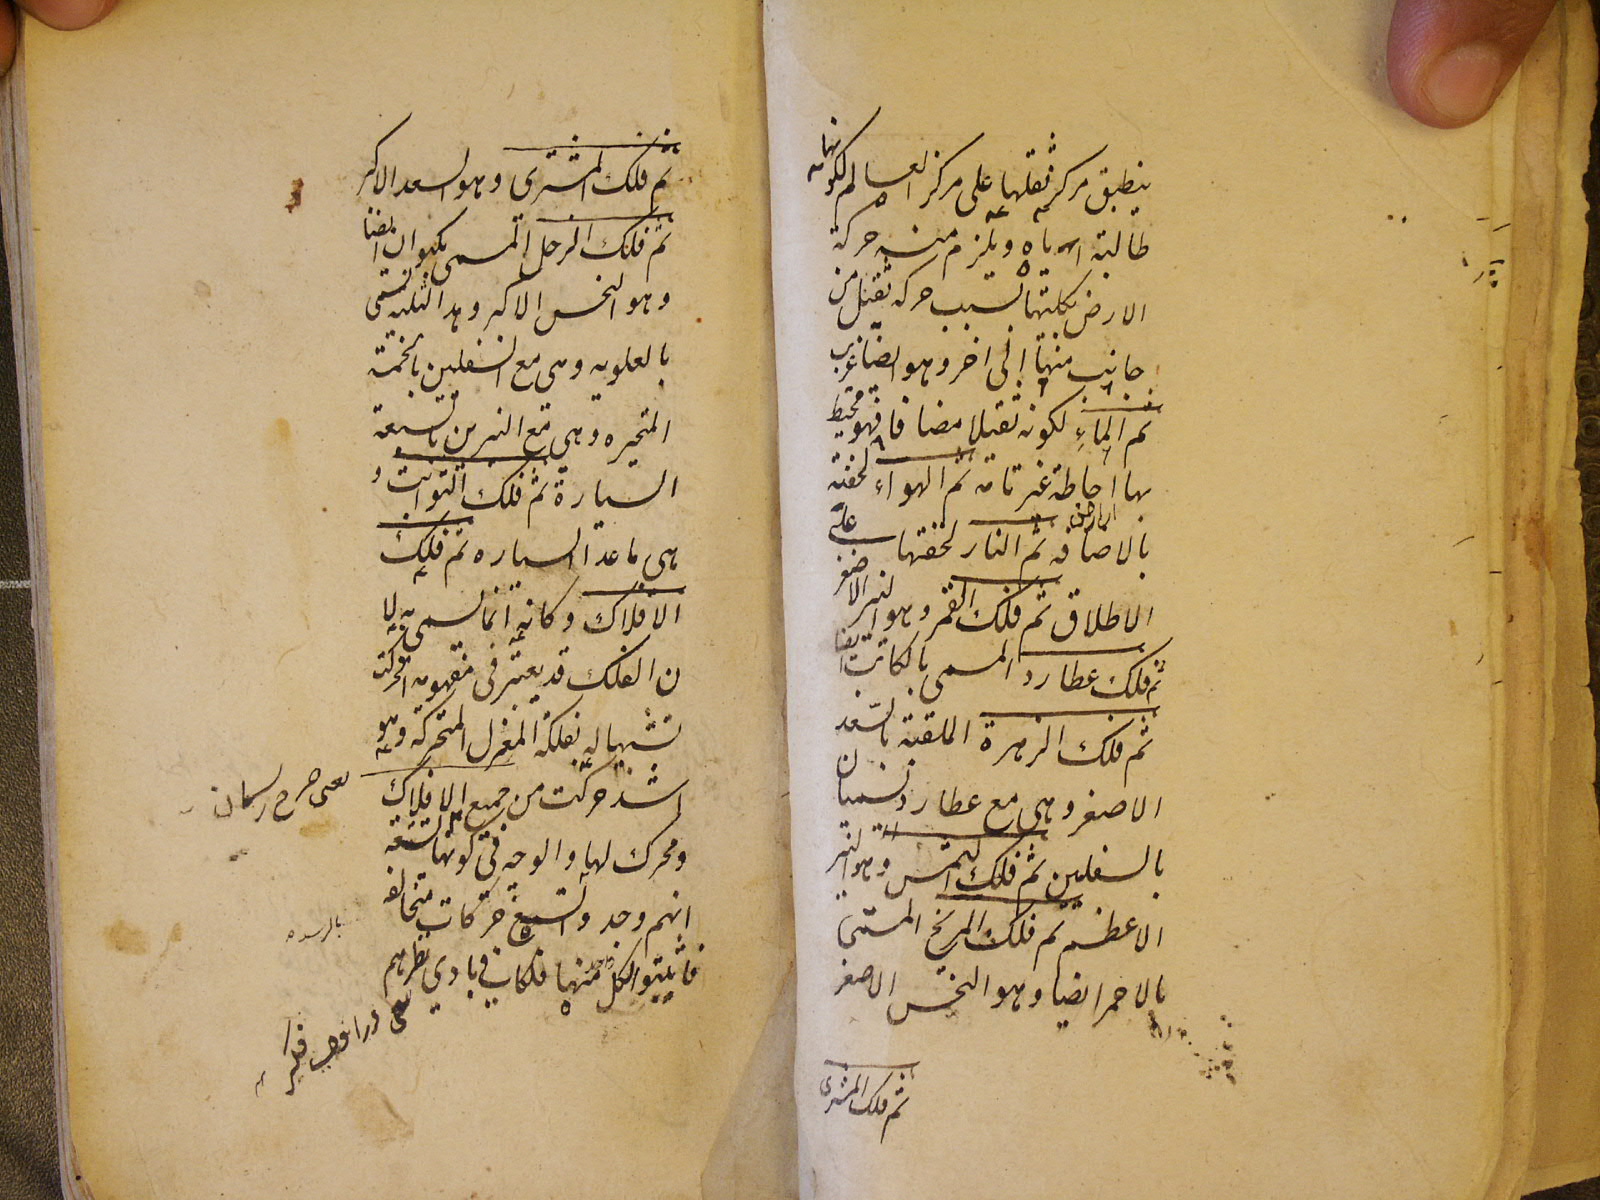 ينطبق مركز ثقلها على مركز العالم لكونها
طالبة اياه ويلزم منه حركة
الارض بكليتها بسبب حركه ثقيل من
جانب منها الى اخر وهو ايضا غريب
ثم الماء لكونه ثقيلا مضافا فهو محيط
بها احاطة غير تامة ثم الهواء لخفته
بالاضافه ثم النار لخفتها على
الاطلاق ثم فلك القمر وهو النير الاصغر
ثم فلك عطارد المسمى بالكاتب ايضا
ثم فلك الزهرة الملقبة بالسعد
الاصغر وهى مع عطارد تسميان
بالسفليين ثم فلك الشمس وهو النير
الاعظم ثم فلك المريخ المسمى
بالاحمر ايضا وهو النحس الاصغر
ثم فلك المشترى
ثم فلك المشترى وهو السعد الاكبر
ثم فلك الزحل المسمى بكيوان ايضا
وهو النحس الاكبر وهذا الثلثه تسمى
بالعلويه وهى مع السفليين بالخمسة
المتحيره وهى مع النيرين بالسبعة
السيارة ثم فلك الثوابت و
هى ما عدا السياره ثم فلك
الافلاك وكانه انما سمى به لا
ن الفلك قد يعتبر فى مفهومه الحركة
تشبيها له بفلكة المغزل المتحركة وهو
اشد حركت من جميع الافلاك
ومحرك لها والوجه فى كونها تسعة
انهم وجدوا تسع حركات متخالفه
فاثبتوا لكل منها فلكا فى بادى نظرهم